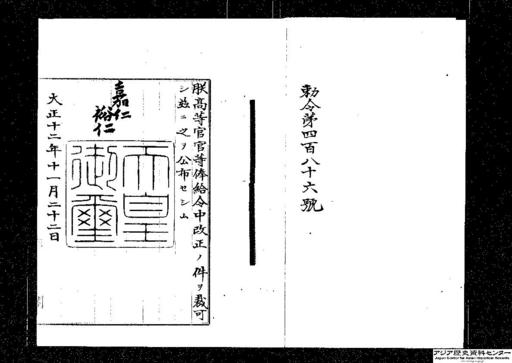 勅令第四百八十六號
朕高等官官等俸給令中改正ノ件ヲ裁可
シ玆ニ之ヲ公布セシム
嘉仁
裕仁
天皇
御璽
大正十二年十一月二十二日
アジア歴史資料センター
Japan Center for Asian Historical Records